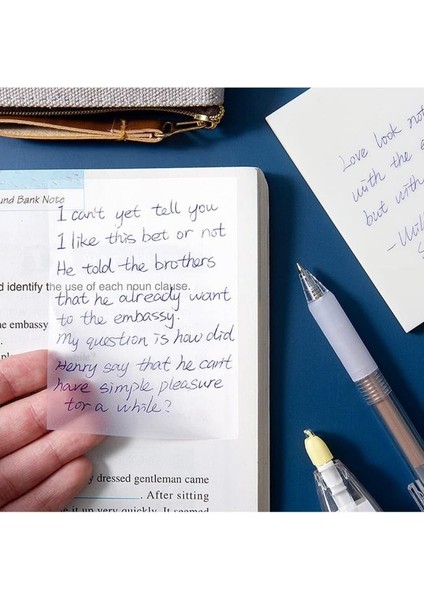 und Bank Note
I can't yet tell you
I like this bet or not
He told the brothers
d identify the use of each noun clause.
that he already want
to the embassy.
the embassy
My question is how did
Henry say that he can't
have simple pleasure
for a while?
y dressed gentleman came
. After sitting
it up very quickly. It seemed
Love look not
with the e
but with
-Will
S